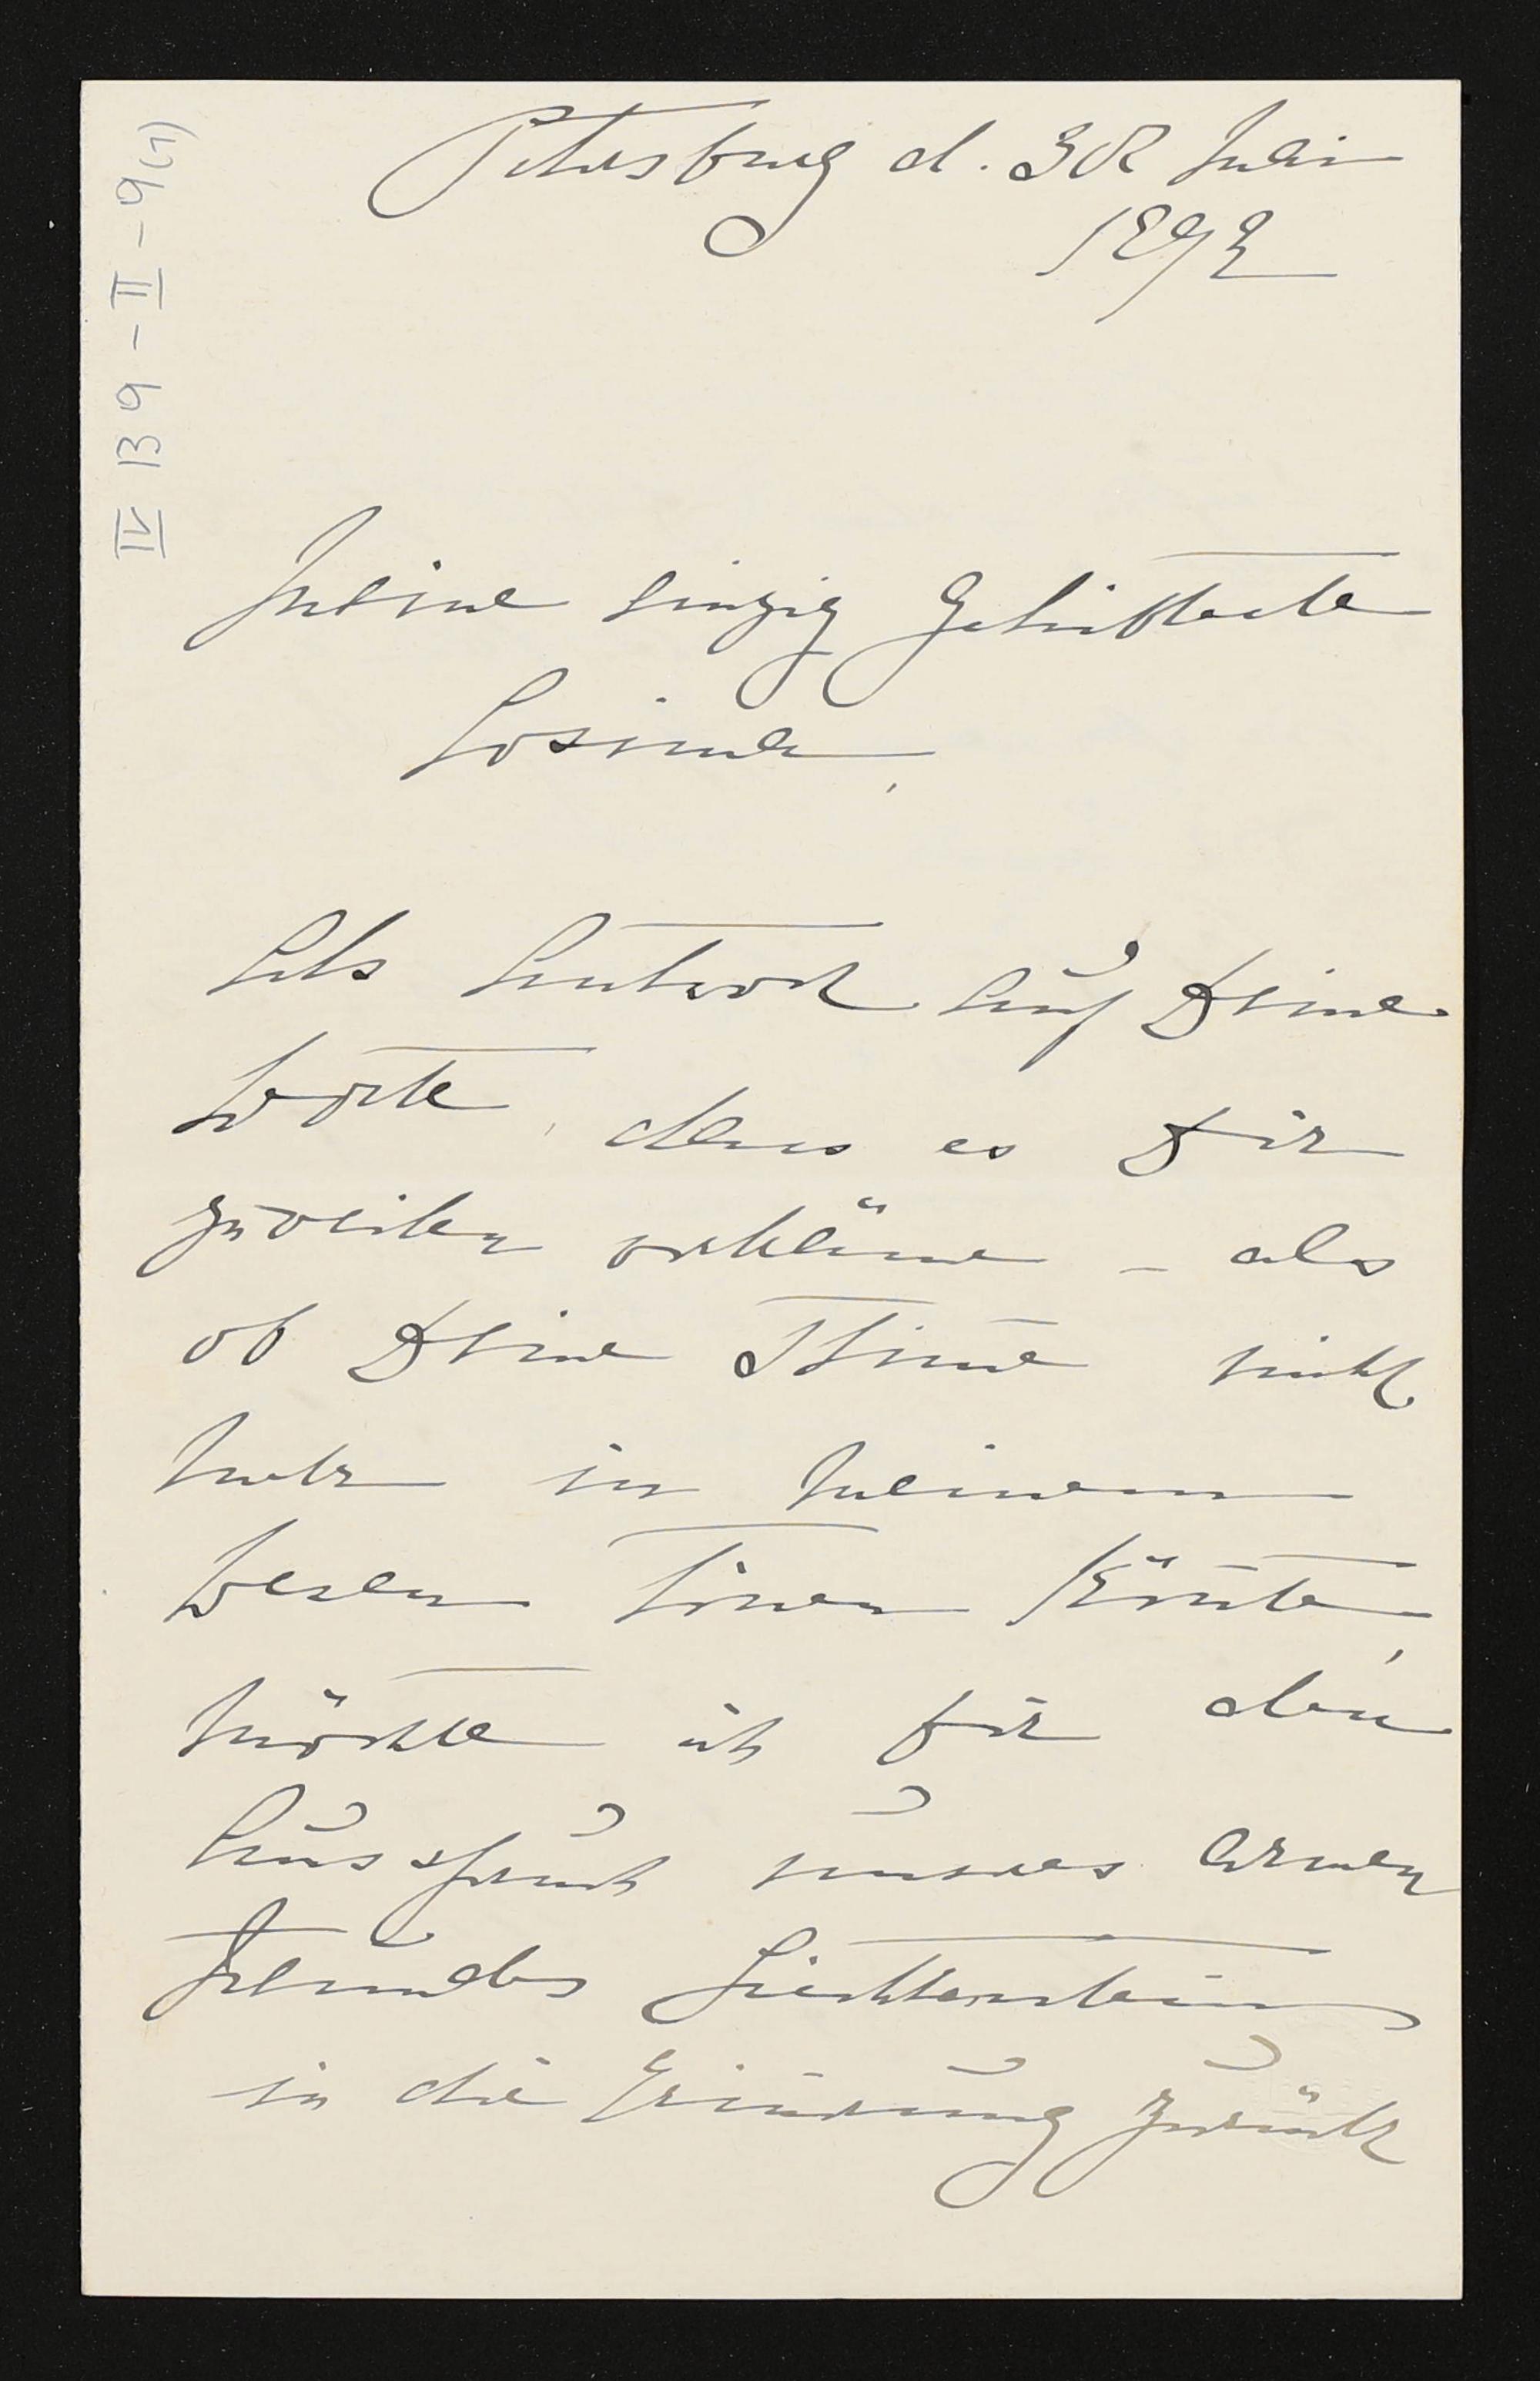 IV B 9 - II - 9(1)
Petersburg d. 30 Mai
1892
Meine einzig Geliebteste
Cosima,
Als Antwort auf Deine
Worte, dass es Dir
zuweilen vorkäme – als
ob Deine Stim̅e nicht
mehr in meinem
Wesen tönen kön̅te,
möchte ich Dir den
Ausspruch unsres armen
Freundes Liechtenstein
in die Erin̅rung zurück